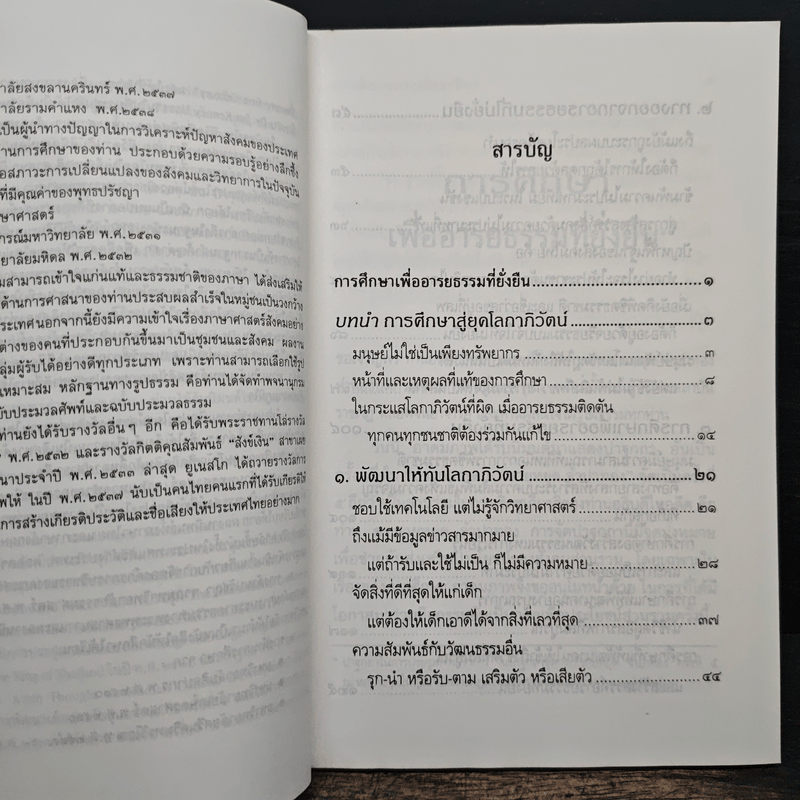 าลัยสงขลานครินทร์ พ.ศ.๒๕๓๗
าลัยรามคำแหง พ.ศ.๒๕๓๘
เป็นผู้นำทางปัญญาในการวิเคราะห์ปัญหาสังคมของประเทศ
านการศึกษาของท่าน ประกอบด้วยความรอบรู้อย่างลึกซึ้ง
อสภาวะการเปลี่ยนแปลงของสังคมและวิทยาการในปัจจุบัน
ที่มีคุณค่าของพุทธปรัชญา
าษาศาสตร์
กรณ์มหาวิทยาลัย พ.ศ.๒๕๓๑
ยาลัยมหิดล พ.ศ.๒๕๓๒
มสามารถเข้าใจแก่นแท้และธรรมชาติของภาษา ได้ส่งเสริมให้
ด้านการศาสนาของท่านประสบผลสำเร็จในหมู่ชนเป็นวงกว้าง
ระเทศนอกจากนี้ยังมีความเข้าใจเรื่องภาษาศาสตร์สังคมอย่าง
ต่างของคนที่ประกอบกันขึ้นมาเป็นชุมชนและสังคม ผลงาน
ลุ่มผู้รับได้อย่างดีทุกประเภท เพราะท่านสามารถเลือกใช้รูป
เหมาะสม หลักฐานทางรูปธรรม คือท่านได้จัดทำพจนานุกรม
บับประมวลศัพท์และฉบับประมวลธรรม
ท่านยังได้รับรางวัลอื่นๆ อีก คือได้รับพระราชทานโล่รางวัล
พ.ศ.๒๕๓๒ และรางวัลกิตติคุณสัมพันธ์ "สังข์เงิน" สาขาเผย
นาประจำปี พ.ศ.๒๕๓๓ ล่าสุด ยูเนสโก ได้ถวายรางวัลการ
พให้ ในปี พ.ศ.๒๕๓๗ นับเป็นคนไทยคนแรกที่ได้รับเกียรติให้
การสร้างเกียรติประวัติและชื่อเสียงให้ประเทศไทยอย่างมาก
สารบัญ
การศึกษาเพื่ออารยธรรมที่ยั่งยืน ๑
บทนำ การศึกษาสู่ยุคโลกาภิวัตน์ ๓
มนุษย์ไม่ใช่เป็นเพียงทรัพยากร ๓
หน้าที่และเหตุผลที่แท้ของการศึกษา ๘
ในกระแสโลกาภิวัตน์ที่ผิด เมื่ออารยธรรมติดตัน
ทุกคนทุกชนชาติต้องร่วมกันแก้ไข ๑๔
๑. พัฒนาให้ทันโลกาภิวัตน์ ๒๑
ชอบใช้เทคโนโลยี แต่ไม่รู้จักวิทยาศาสตร์ ๒๑
ถึงแม้มีข้อมูลข่าวสารมากมาย
แต่ถ้ารับและใช้ไม่เป็น ก็ไม่มีความหมาย ๒๘
จัดสิ่งที่ดีที่สุดให้แก่เด็ก
แต่ต้องให้เด็กเอาดีได้จากสิ่งที่เลวที่สุด ๓๗
ความสัมพันธ์กับวัฒนธรรมอื่น
รุก-นำ หรือรับ-ตาม เสริมตัว หรือเสียตัว ๔๔